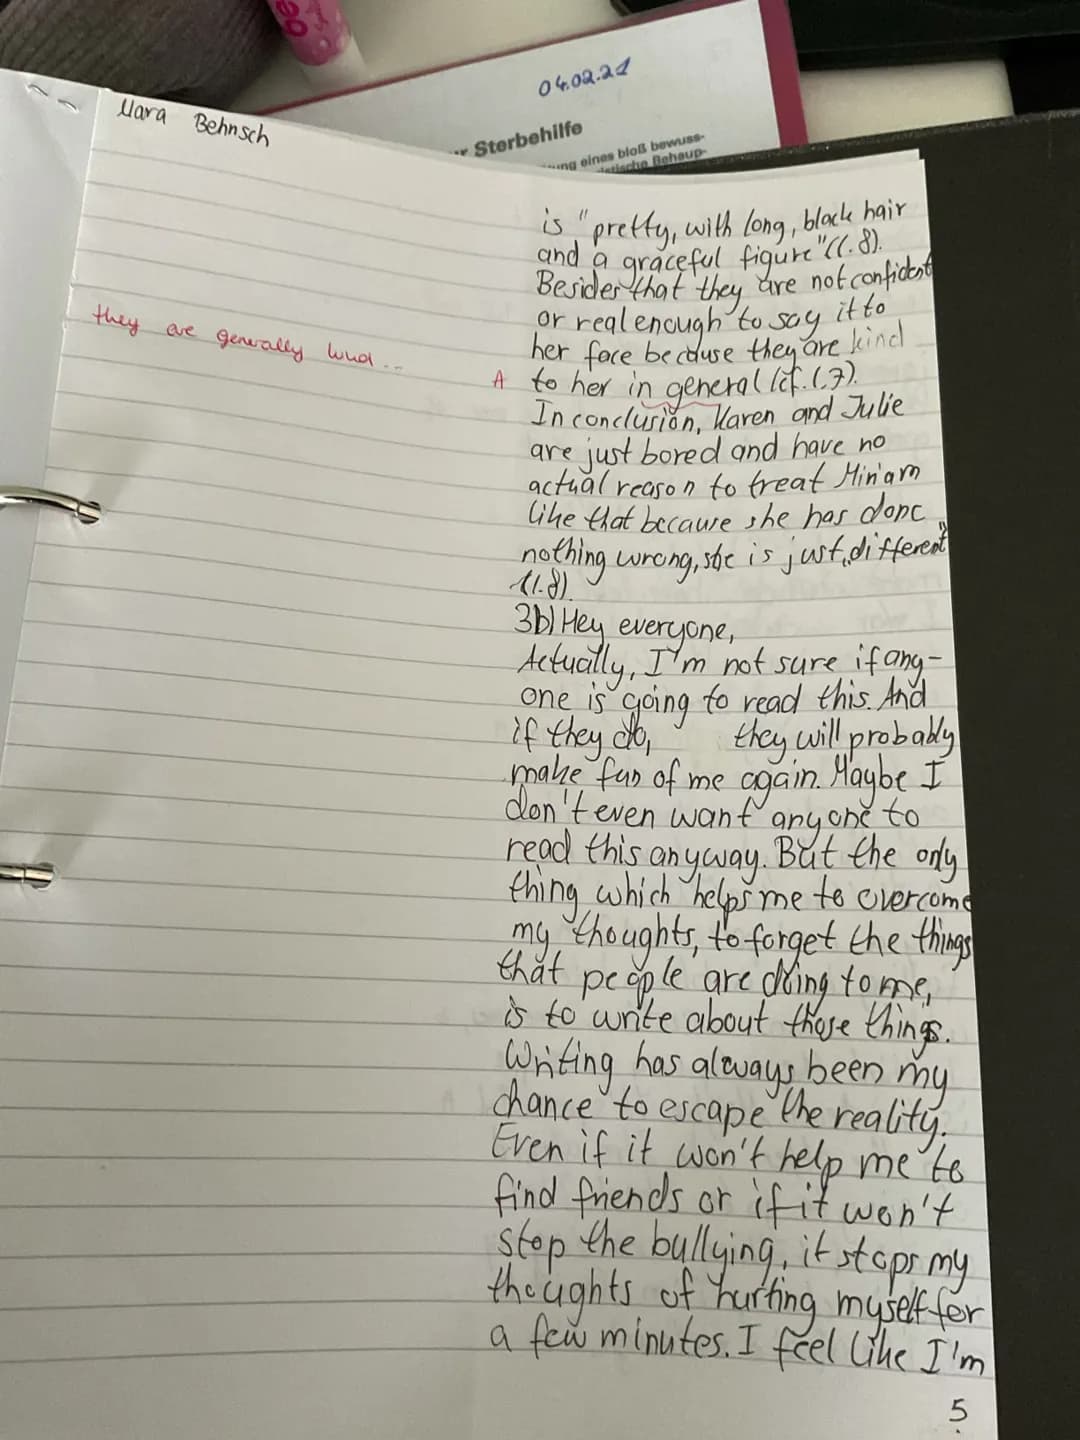 04.02.21
Mara Behnsch
Sterbehilfe
eines bloß bewuss-
Behaup-
is "pretty, with long, black hair
and a graceful figure" (l. 8).
Besides that they are not confident
or real enough to say it to
her face because they are kind
they are generally kind...
A to her in general (cf. l. 7).
In conclusion, Karen and Julie
are just bored and have no
actual reason to treat Miriam
like that because she has done
nothing wrong, she is just „different"
(l. 8).
3b) Hey everyone,
Actually, I'm not sure if any-
one is going to read this. And
if they do, they will probably
make fun of me again. Maybe I
don't even want anyone to
read this anyway. But the only
thing which helps me to overcome
my thoughts, to forget the things
that people are doing to me,
is to write about those things.
Writing has always been my
chance to escape the reality.
Even if it won't help me to
find friends or if it won't
stop the bullying, it stops my
thoughts of hurting myself for
a few minutes. I feel like I'm
5